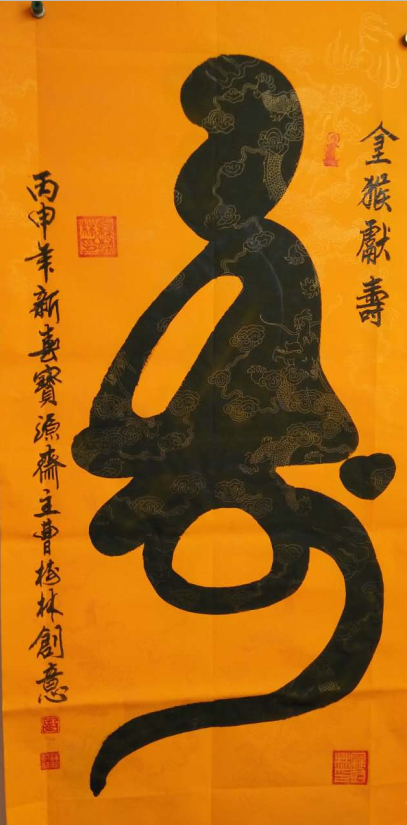 金猴獻壽
壽
丙申年新春寶源齋主曹桂林創意